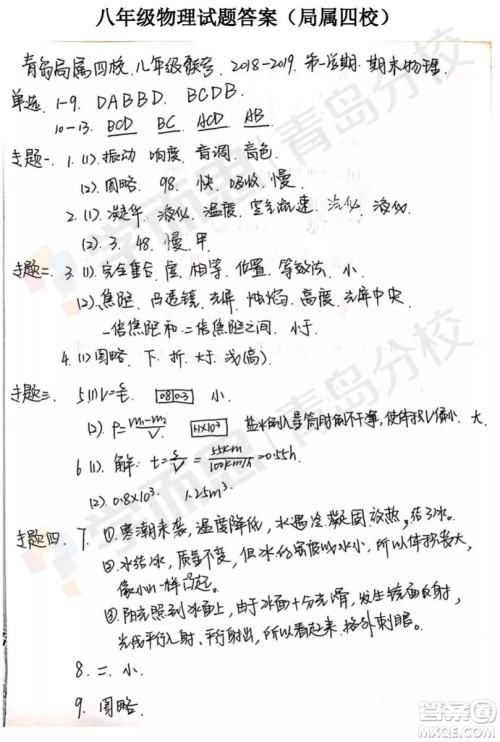 八年级物理试题答案（局属四校）
青岛局属四校八年级联考 2018-2019 第一学期 期末物理
单选 1-9. DABBD. BCDB.
10-13. BCD BC ACD AB
主题一、1.(1).振动 响度 音调 音色
(2).图略 98. 快. 吸收. 慢.
2.(1).凝华. 液化. 温度. 空气流速. 汽化. 液化.
(2). 3. 48. 慢. 甲
主题二、3.(1).完全重合. 度. 相等. 位置. 等效法. 小.
(2).焦距. 凸透镜. 光屏. 烛焰. 高度. 光屏中央.
一倍焦距和二倍焦距之间. 小于.
4.(1)图略. 下. 折. 大于. 浅(高).
主题三、5.(1)V=s/t. 小.
(2). ρ=(m₁-m₂)/V. 1.1×10³ 盐水倒入量筒时倒不干净,使体积V偏小. 大.
6.(1).解: t=s/V=55km/100km/h=0.55h.
(2).0.8×10³. 1.25m³.
主题四、7.①.寒潮来袭,温度降低,水遇冷凝固放热,结了冰.
②.水结冰,质量不变,但冰的密度比水小,所以体积变大,
像小山一样凸起.
③.阳光照到冰面上,由于冰面十分光滑,发生镜面反射,
光线平行入射、平行射出,所以看起来格外刺眼.
8.二.小.
9.图略.
学而思 青岛分校
学而思 青岛分校
MXQE.COM